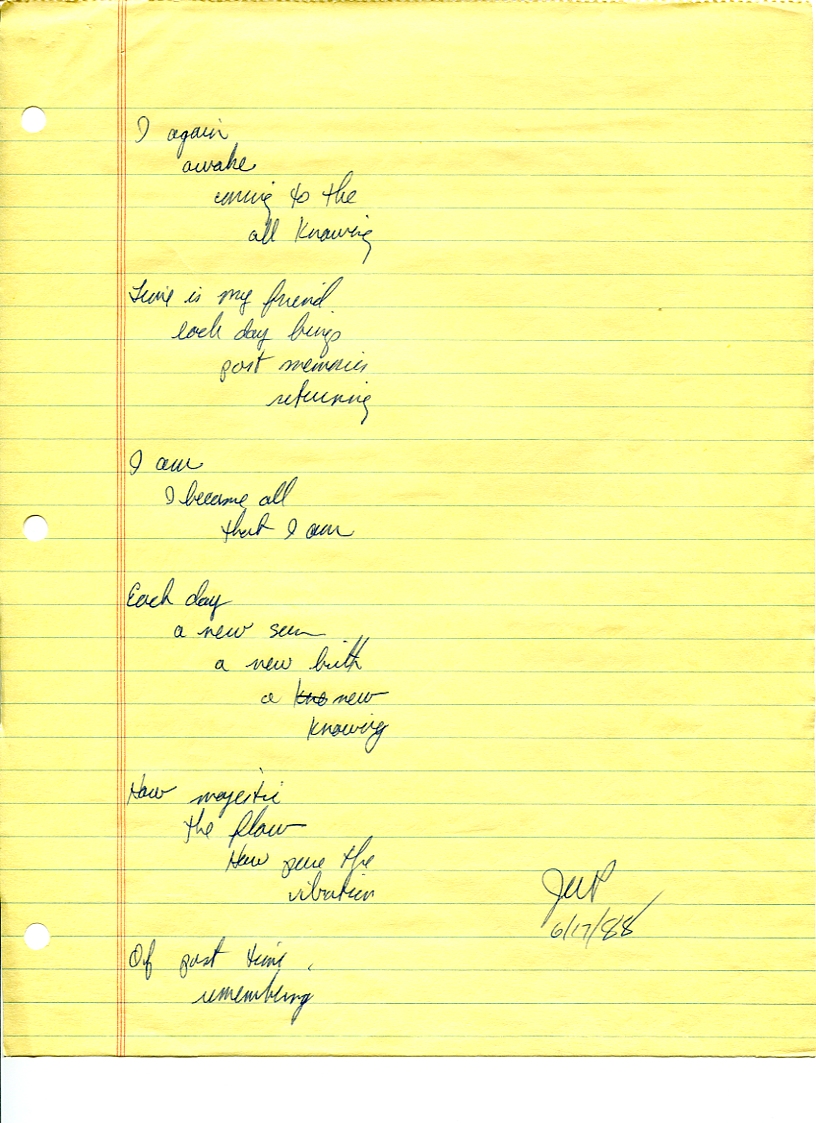 I again
awake
coming to the
all Knowing
Time is my friend
each day brings
past memories
returning
I am
I became all
that I am
Each day
a new sun
a new birth
a kno new
Knowing
How majestic
the flow
How pure the
vibration
6/17/88
Of past time
remembering